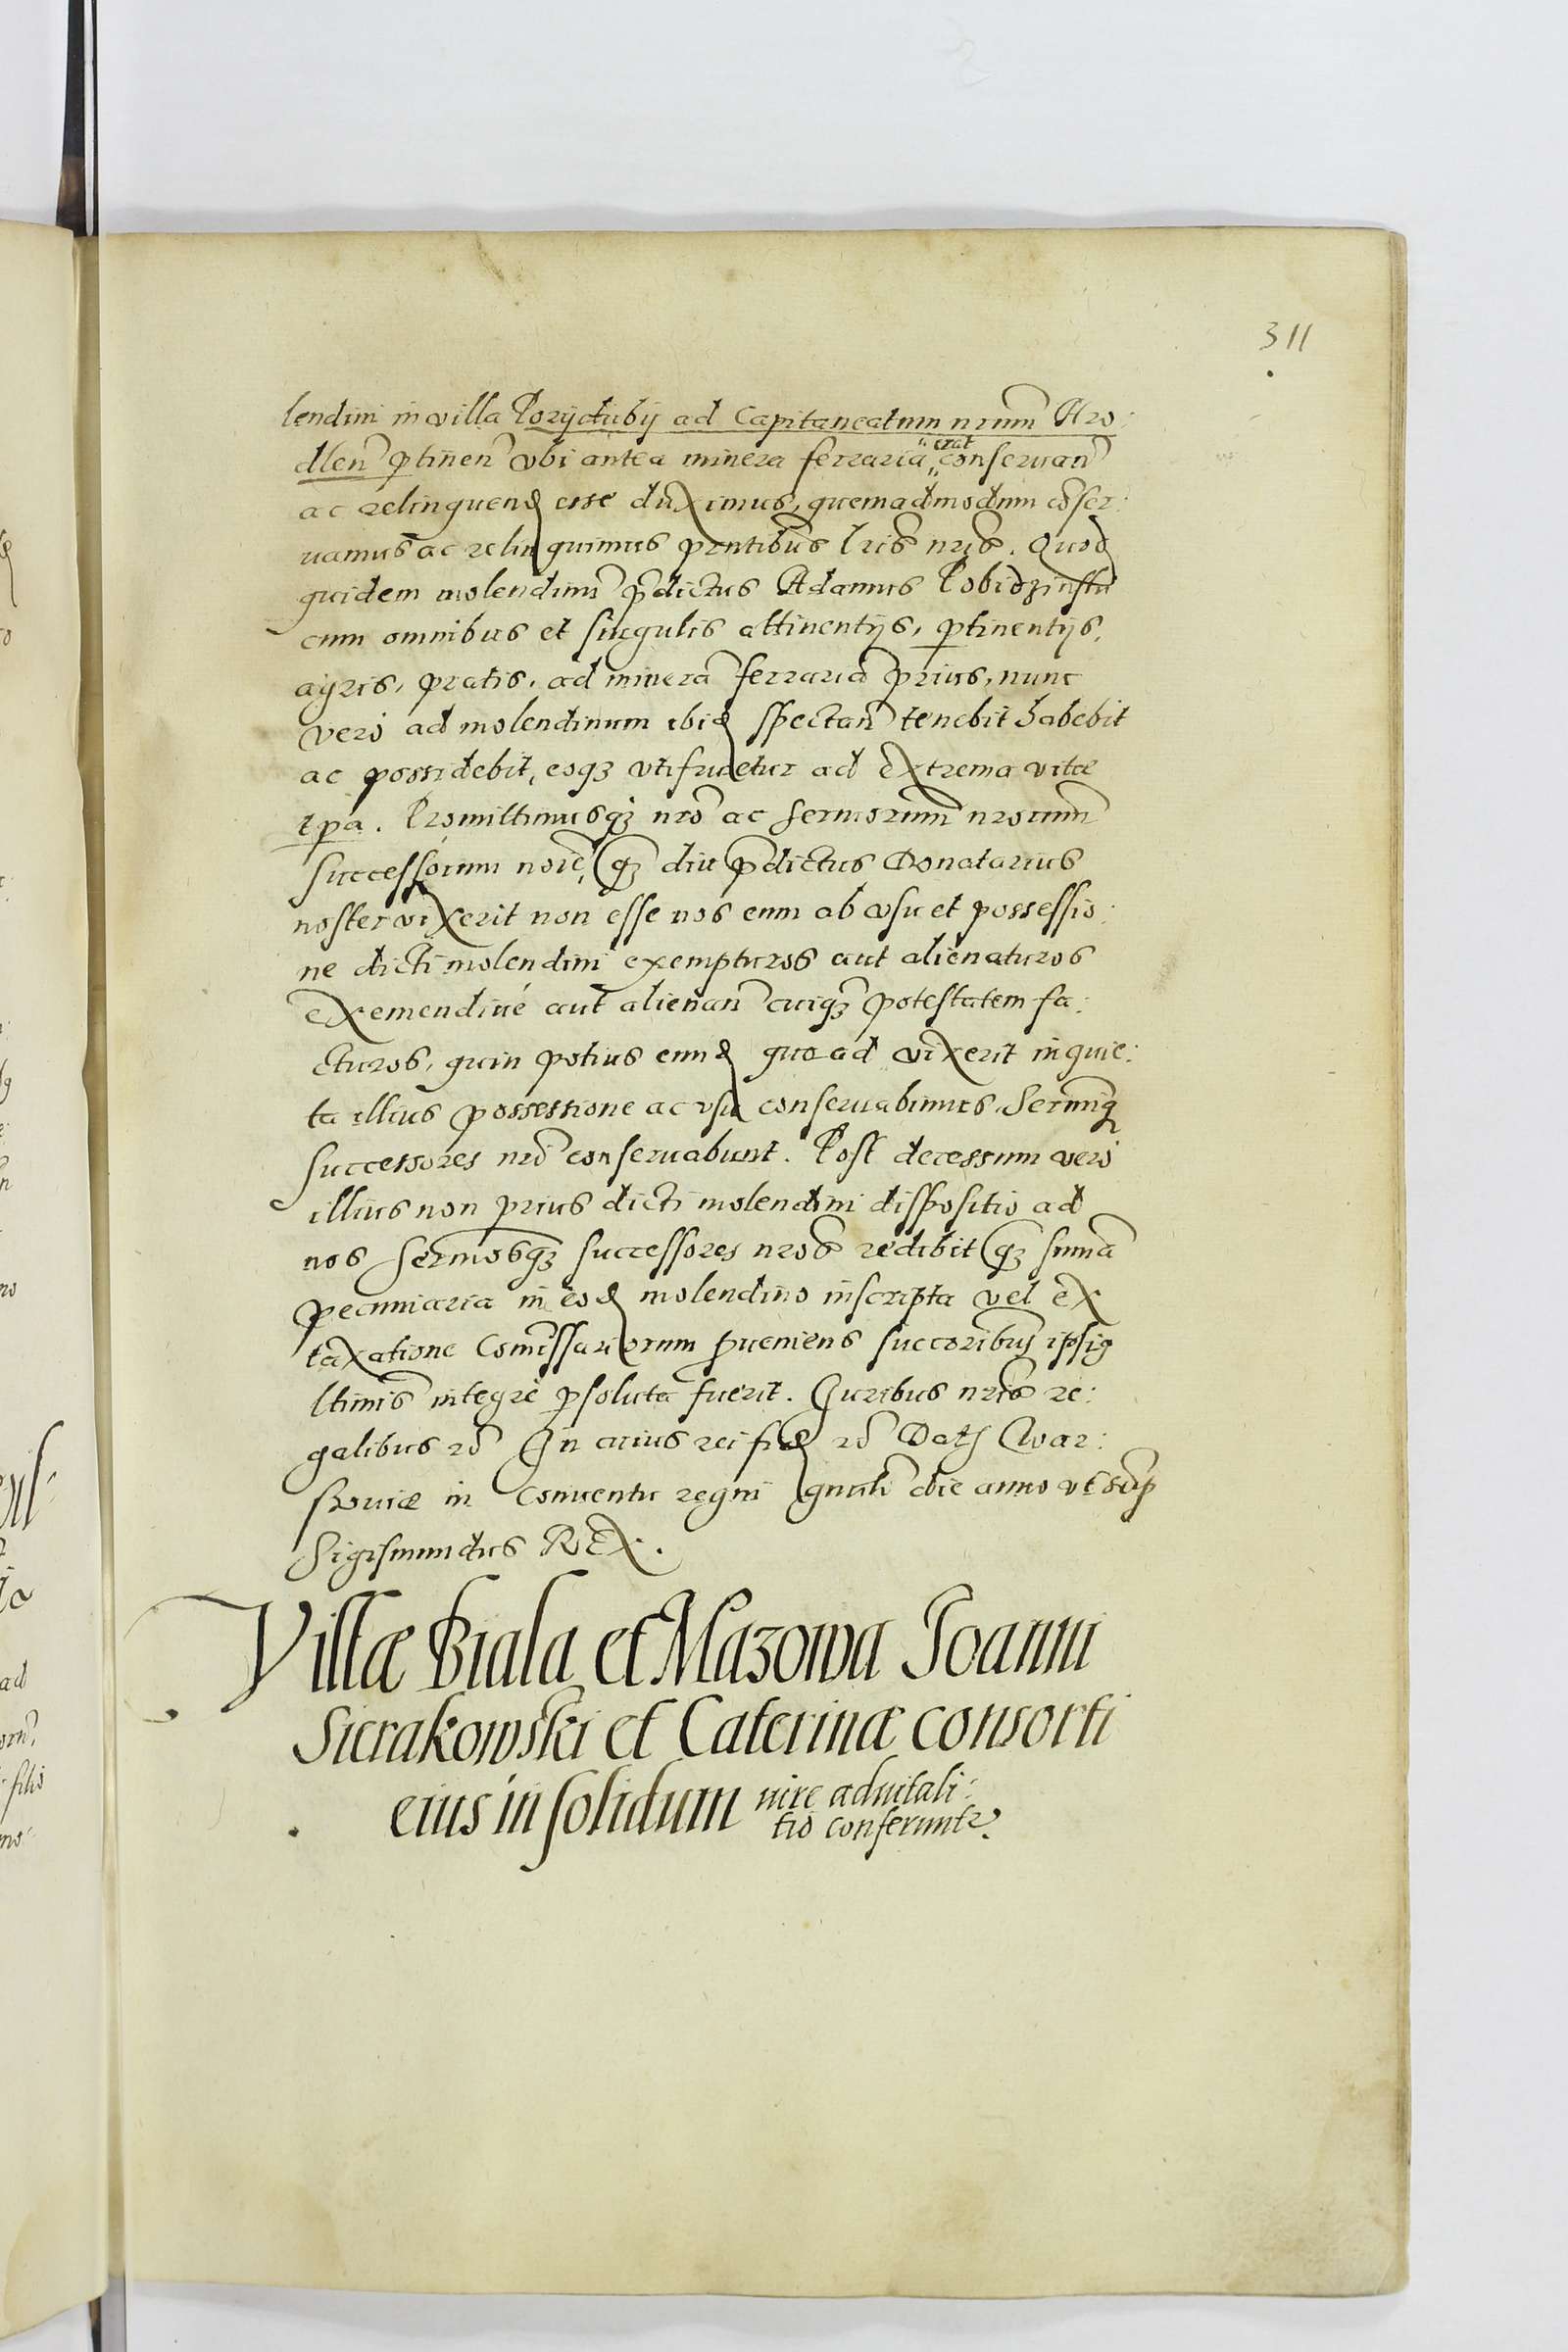 311
lendini in villa Poryctubij ad Capitaneatum nrum Hro:
dlen ptinen vbi antea minera ferraria erat conseruan
ac relinquend esse duximus, quemadmodum conser:
uamus ac relinquimus pntibus lris nris. Quod
quidem molendinu pdictus Adamus
cum omnibus et singulis attinentijs, ptinentijs,
agris, pratis, ad minera ferraria prius, nunc
vero ad molendinum ibid spectan tenebit habebit
ac possidebit, eoqz vtifruetur ad extrema vitæ
tpa. Promittimusqz nro ac Sermorum nrorum
successorum noie, qz diu pdictus Donatarius
noster vixerit non esse nos eum ab vsu et possessio:
ne dicti molendini exempturos aut alienaturos
exemendiué aut alienan cuiqz potestatem fa:
cturos, quin potius eund quoad vixerit in quie:
ta illius possessione ac vsu conseruabimus, Sermiqz
successores nri conseruabunt. Post decessum vero
illius non prius dicti molendini dispositio ad
nos Sermosqz successores nros redibit qz suma
pecuniaria in eod molendino inscripta vel ex
taxatione Comissariorum pueniens succoribus ipsiq
ltimis integre psoluta fuerit. Juribus nris re:
galibus In cuius rei fid Dat War:
souiæ in Conuentu regni gnali die anno vt sup
Sigismundus REX.
Villæ Biala et Mazowa Joanni
Sierakowski et Caterinæ consorti
eius in solidum iure aduitali:
tio conferuntr.